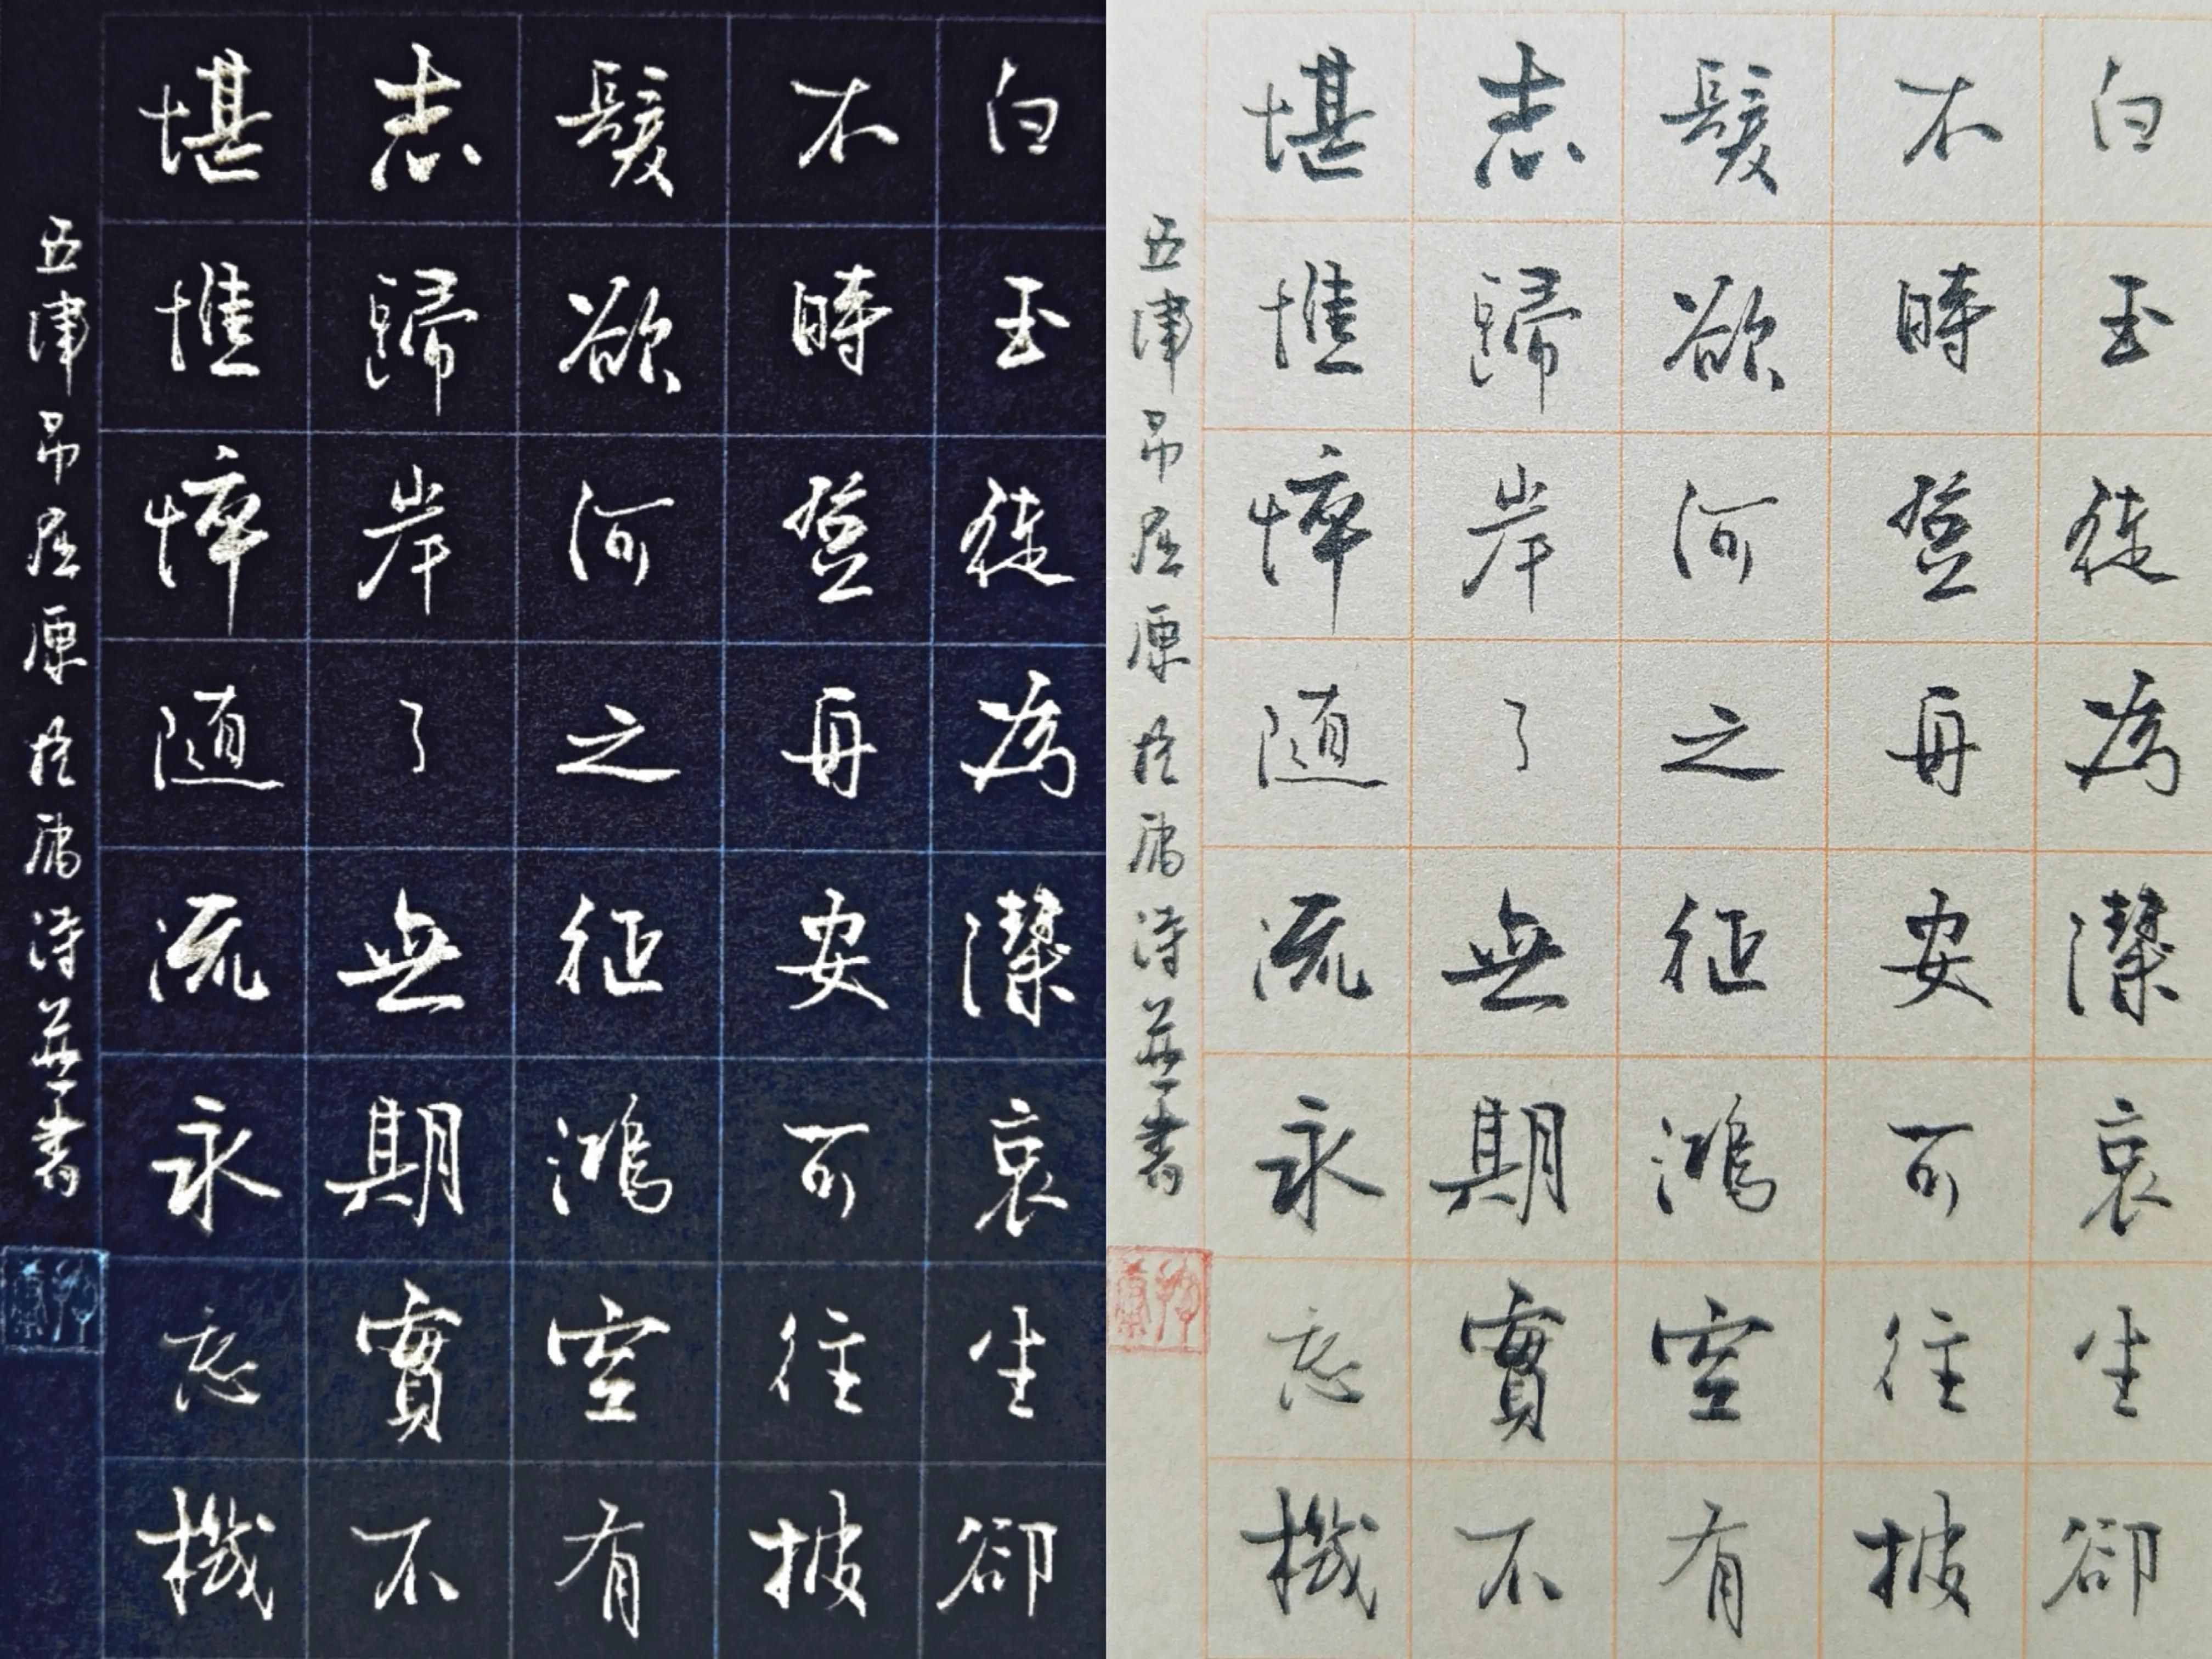 白玉徒為潔哀生卻
不時登舟安可往披
髮欲何之征鴻空有
志歸岸了無期實不
堪憔悴隨流永忘機
五律弔屈原 詩並書
白玉徒為潔哀生卻
不時登舟安可往披
髮欲何之征鴻空有
志歸岸了無期實不
堪憔悴隨流永忘機
五律弔屈原 詩並書